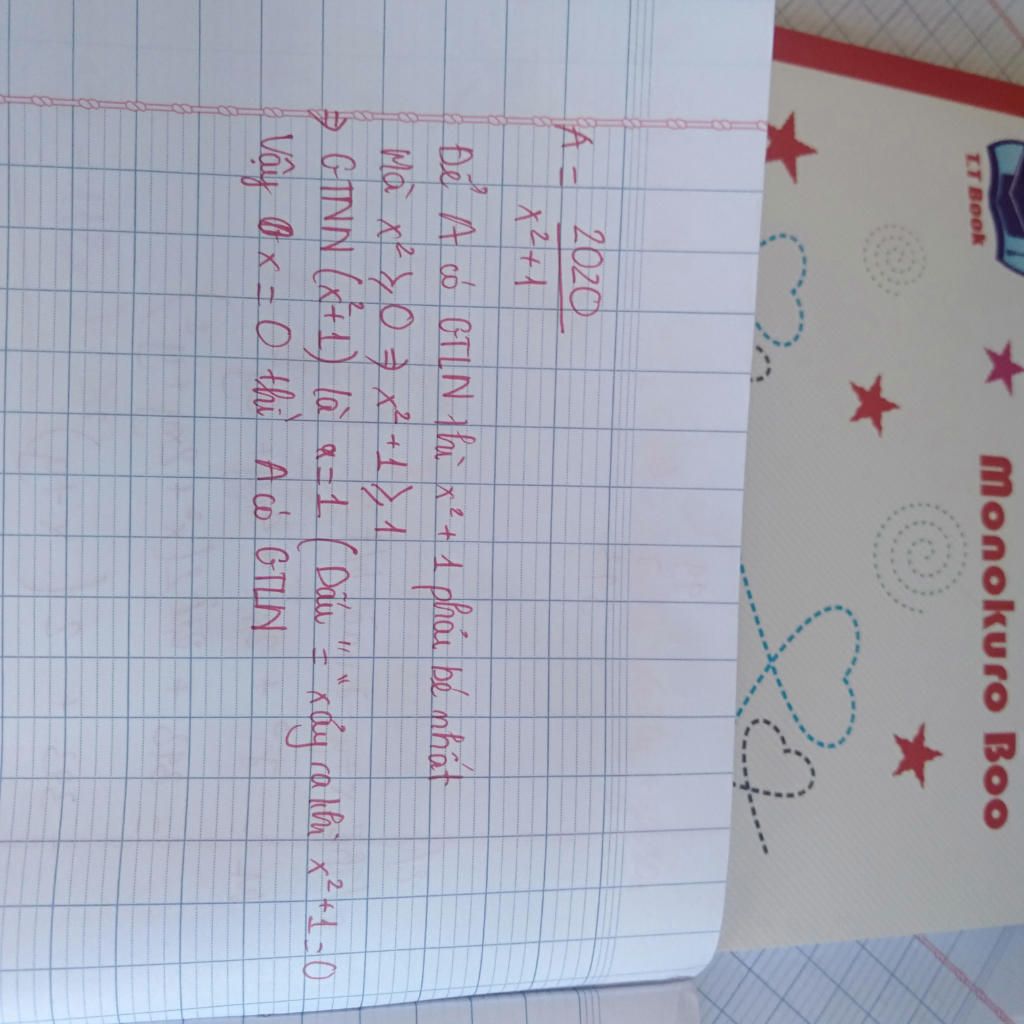 A = 2020
x² + 1
Để A có GTLN thì x² + 1 phải bé nhất
Mà x² ≥ 0 ⇒ x² + 1 ≥ 1
⇒ GTNN (x² + 1) là = 1 (Dấu "=" xảy ra khi x² + 1 = 0
Vậy x = 0 thì A có GTLN
T.T Book
Monokuro Boo